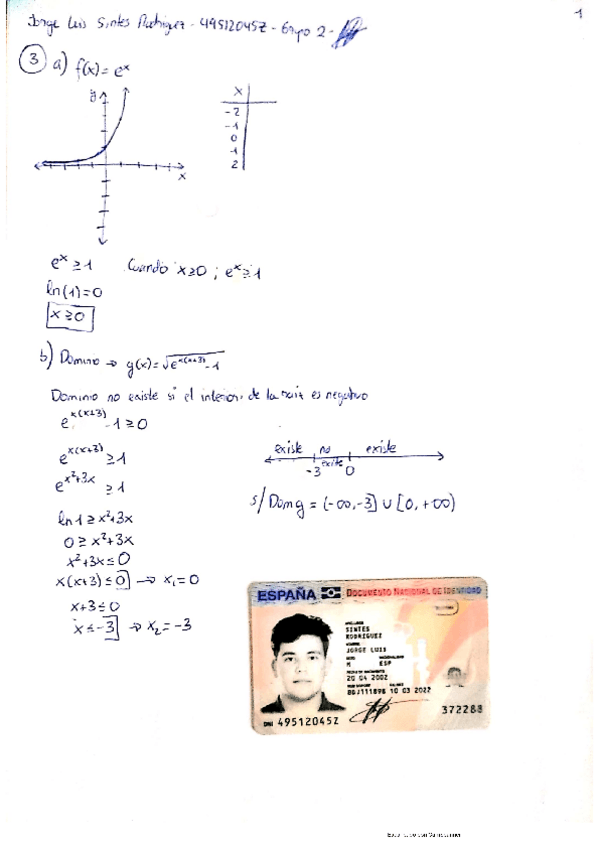 1
Jorge Luis Sintes Rodríguez - 49512045Z - Grupo 2 -
3 a) f(x) = eˣ
y
x
x
-2
-1
0
1
2
eˣ ≥ 1 Cuando x ≥ 0 ; eˣ ≥ 1
ln(1) = 0
x ≥ 0
b) Dominio → g(x) = √(e^(x(x+3)) - 1)
Dominio no existe si el interior de la raíz es negativo
e^(x(x+3)) - 1 ≥ 0
e^(x(x+3)) ≥ 1
e^(x²+3x) ≥ 1
existe no existe existe
-3 0
s/ Dom g = (-∞, -3] ∪ [0, +∞)
ln 1 ≥ x²+3x
0 ≥ x²+3x
x²+3x ≤ 0
x(x+3) ≤ 0 → x₁ = 0
x+3 ≤ 0
x ≤ -3 → x₂ = -3
ESPAÑA DOCUMENTO NACIONAL DE IDENTIDAD
SINTES
RODRIGUEZ
JORGE LUIS
M ESP
20 04 2002
BGJ111898 10 03 2022
DNI 49512045Z
372288